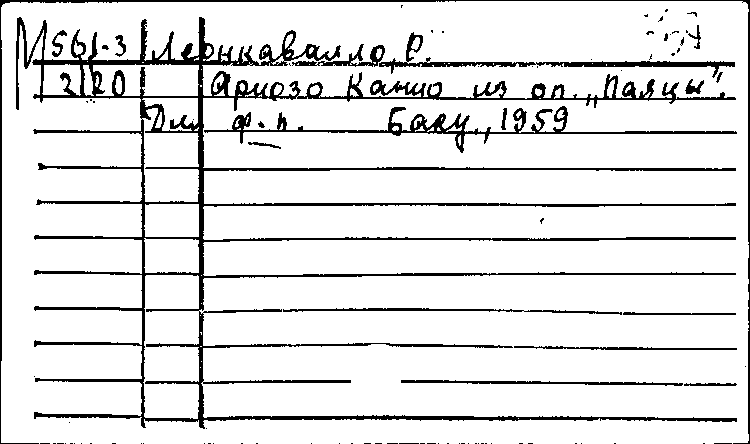 М 561-3 Леонкавалло, Р.
2120 Ариозо Канио из оп. „Паяцы".
Для ф.-п. Баку, 1959